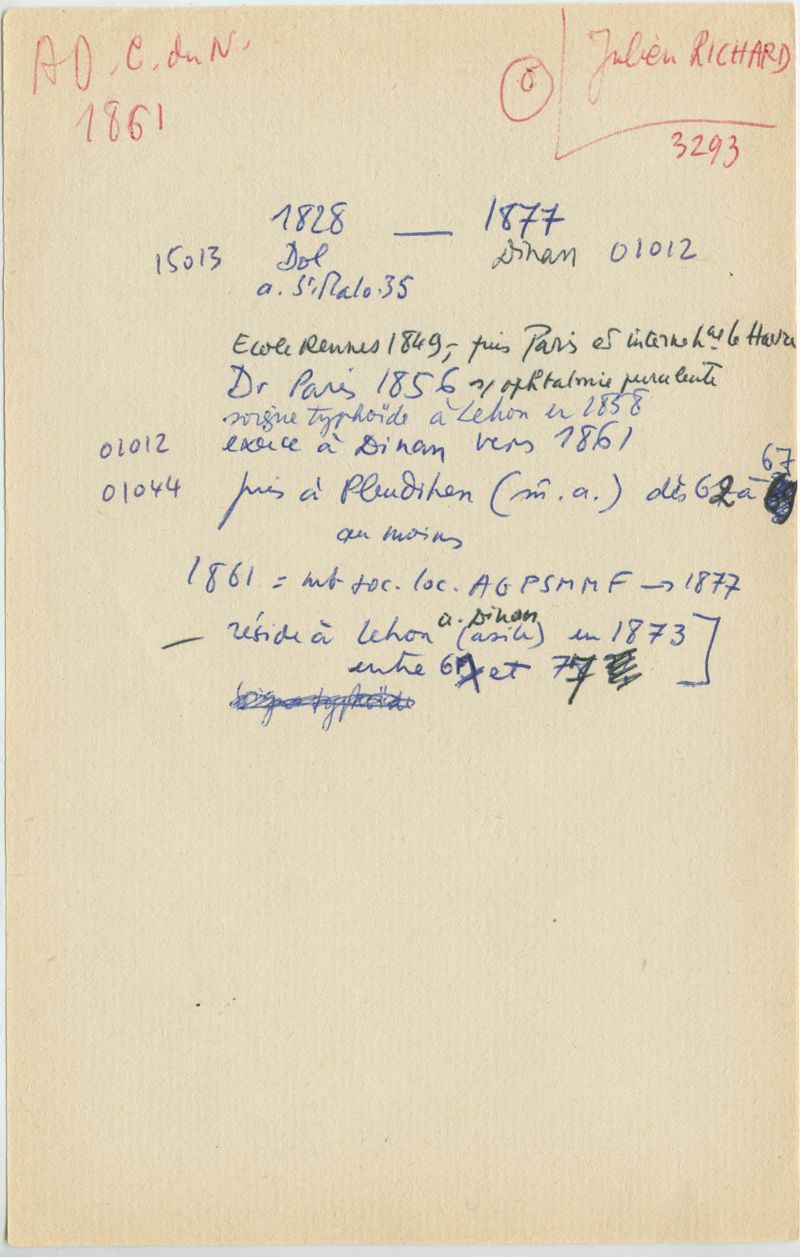 AD. C. du N.
1861
O
Julien RICHARD
3293
1828 — 1877
15013 Dol Dinan 01012
a. St. Malo. 35
Ecole Rennes 1849, puis Paris et interne le Havre
Dr Paris 1856 s/ ophtalmie purulente
soigne typhoïde à Lehon en 1858
01012 exerce à Dinan vers 1861
01044 puis à Pleudihen (m. a.) dès 62 à 67
au moins
1861 = mb soc. loc. AGPSMMF → 1877
— réside à Lehon a. Dinan (asile) en 1873]
entre 67 et 77
soigne typhoïde